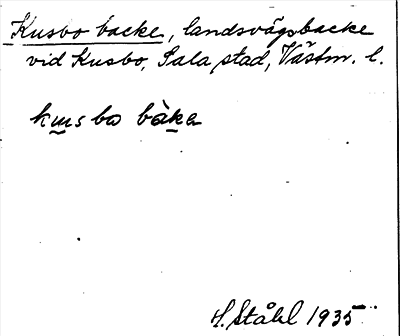 Kusbo backe, landsvägsbacke
vid Kusbo, Sala stad, Västm. l.
kusbo bàka
H. Ståhl 1935